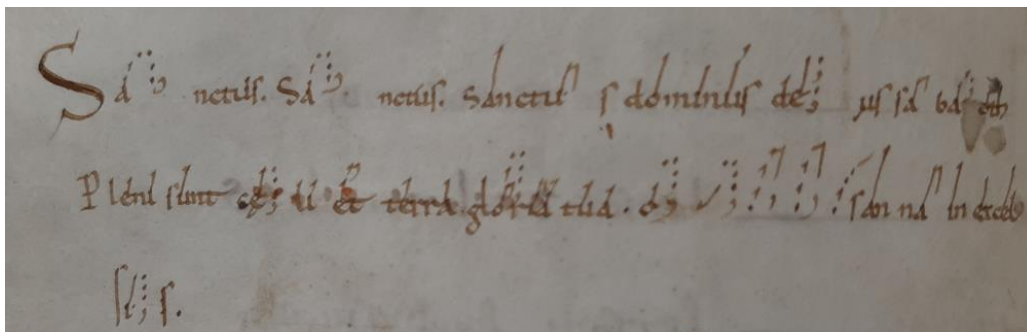 Sa nctus. Sa nctus. Sanctus s dominus de us sa ba oth
Pleni sunt cę li et terra gloria tua. o san na in excel
si s.